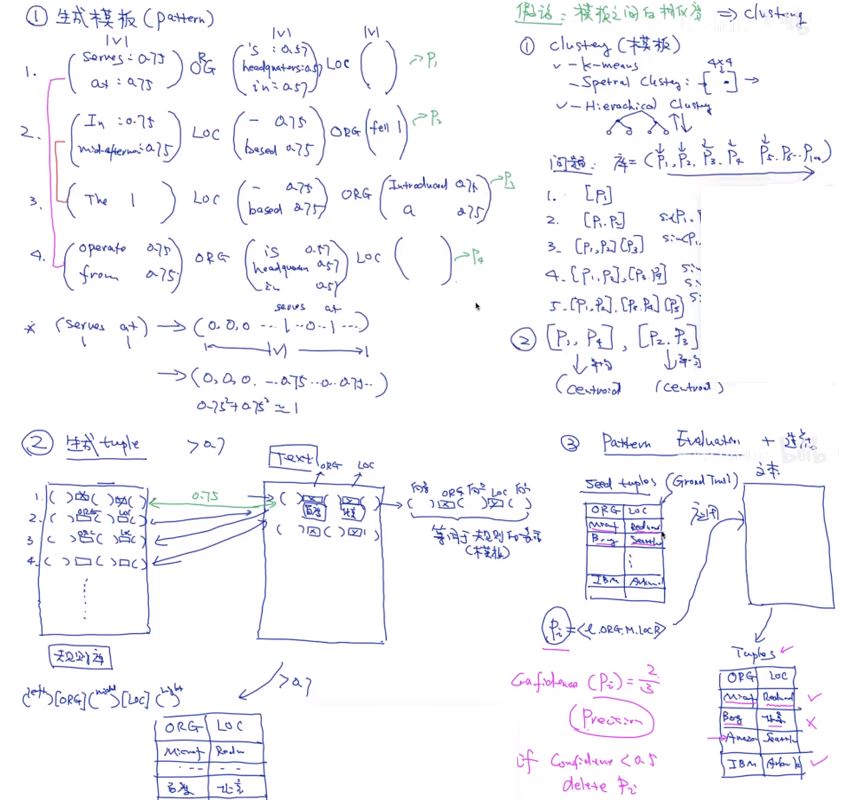 ① 生成模板 (pattern)
|V| |V| |V|
1. (serves : 0.75 at : 0.75) ORG (is : 0.57 headquarters : 0.57 in : 0.57) LOC ( ) → P₁
2. (In : 0.75 mid-afternoon : 0.75) LOC (- 0.75 based 0.75) ORG (fell 1) → P₂
3. (The 1) LOC (- 0.75 based 0.75) ORG (Introduced 0.75 a 0.75) → P₃
4. (operate 0.75 from 0.75) ORG (is 0.57 headquarters 0.57 in 0.57) LOC ( ) → P₄
serves at
* (serves at) → (0,0,0 ... 1 ..0..1 ...)
1 1 |V|
→ (0,0,0. ... 0.75 ..0..0.75..)
0.75²+0.75² ≃ 1
假设: 模板之间的相似度 ⇒ clustering
① clustery (模板)
- k-means
- Spectral Clustery: 4×4
- Hierachical Clustery
问题: 库 = (P₁, P₂, P₃, P₄ P₅. P₆... P₁₀₀)
1. [P₁]
2. [P₁.P₂] sim(P₁,
3. [P₁,P₂] [P₃] sim(P₁.
4. [P₁,P₂], [P₃.P₄] sim
5. [P₁,P₂], [P₃.P₄] [P₅] s
② [P₁, P₄], [P₂.P₃]
平均 平均
(centroid (centroid)
② 生成 tuple >0.7
Text ORG LOC
1. ( ) ( ) ( ) 0.75
2. ( ) ORG ( ) LOC ( )
3. ( ) ( ) ( )
4. ( ) ( ) ( )
百度 北京
向量 ORG 向量 LOC 向量
等同于规则的表示
(模板)
规则库
(left) [ORG] (middle) [LOC] (right)
>0.7
ORG LOC
Microsoft Redm
百度 北京
③ Pattern Evaluation +
Seed tuples (Ground Truth)
文本
ORG LOC
Microsoft Redmond
Boeing Seattle
IBM Armonk
应用
Pᵢ = <L.ORG.M.LOC.R>
Tuples
ORG LOC
Microsoft Redmond ✓
Boeing 北京 ×
Amazon Seattle
IBM Armonk ✓
Confidence (Pᵢ) = 2/3
Precision
if Confidence < 0.5
delete Pᵢ